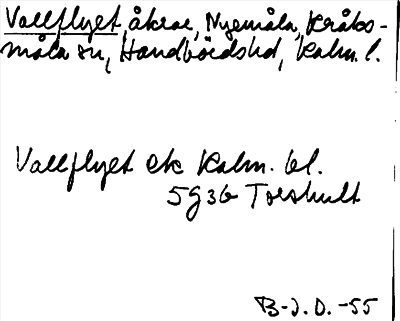 Vallflyet, åkrar, Nyemåla, Kråks-
måla sn, Handbörds hd, Kalm. l.
Vallflyet ek Kalm. bl.
5g3b Torshult
B-J.O. -55